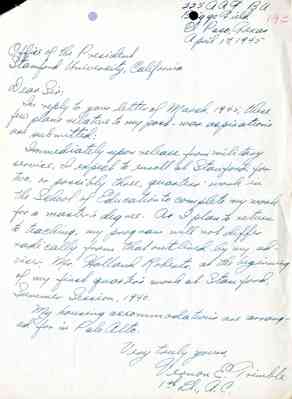 225 AAF BU
Biggs Field
El Paso, Texas
April 17, 1945
Office of the President
Stanford University, California
Dear Sir:
In reply to your letter of March, 1945, these
few plans relative to my post-war aspirations
are submitted:
Immediately upon release from military
service, I expect to enroll at Stanford for
two, or possibly three, quarters' work in
the School of Education to complete my work
for a master's degree. As I plan to return
to teaching, my program will not differ
radically from that outlined by my ad-
viser, Mr. Holland Roberts, at the beginning
of my final quarter's work at Stanford,
Summer Session, 1940.
My housing accommodations are arrang-
ed for in Palo Alto.
Very truly yours,
Vernon E. Trimble
1st Lt., A.C.